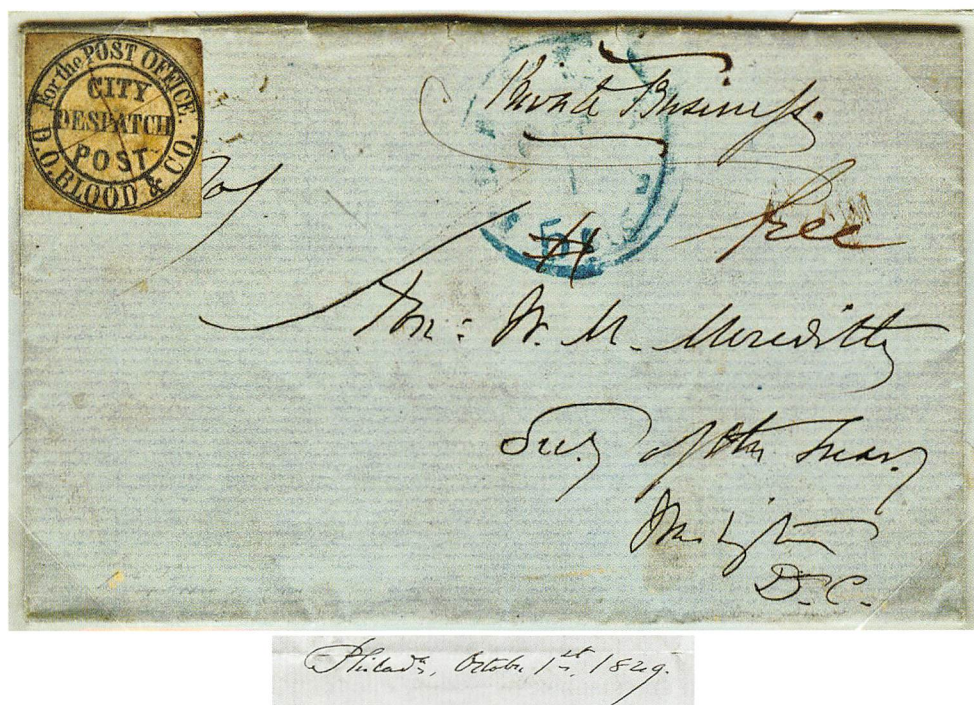 For the POST OFFICE.
CITY
DESPATCH
POST.
D.O. BLOOD & CO.
Private Business.
5
free
Hon: W. M. Meredith
Secy of the Treasy
Washington
D.C.
Philada, October 1st, 1849.